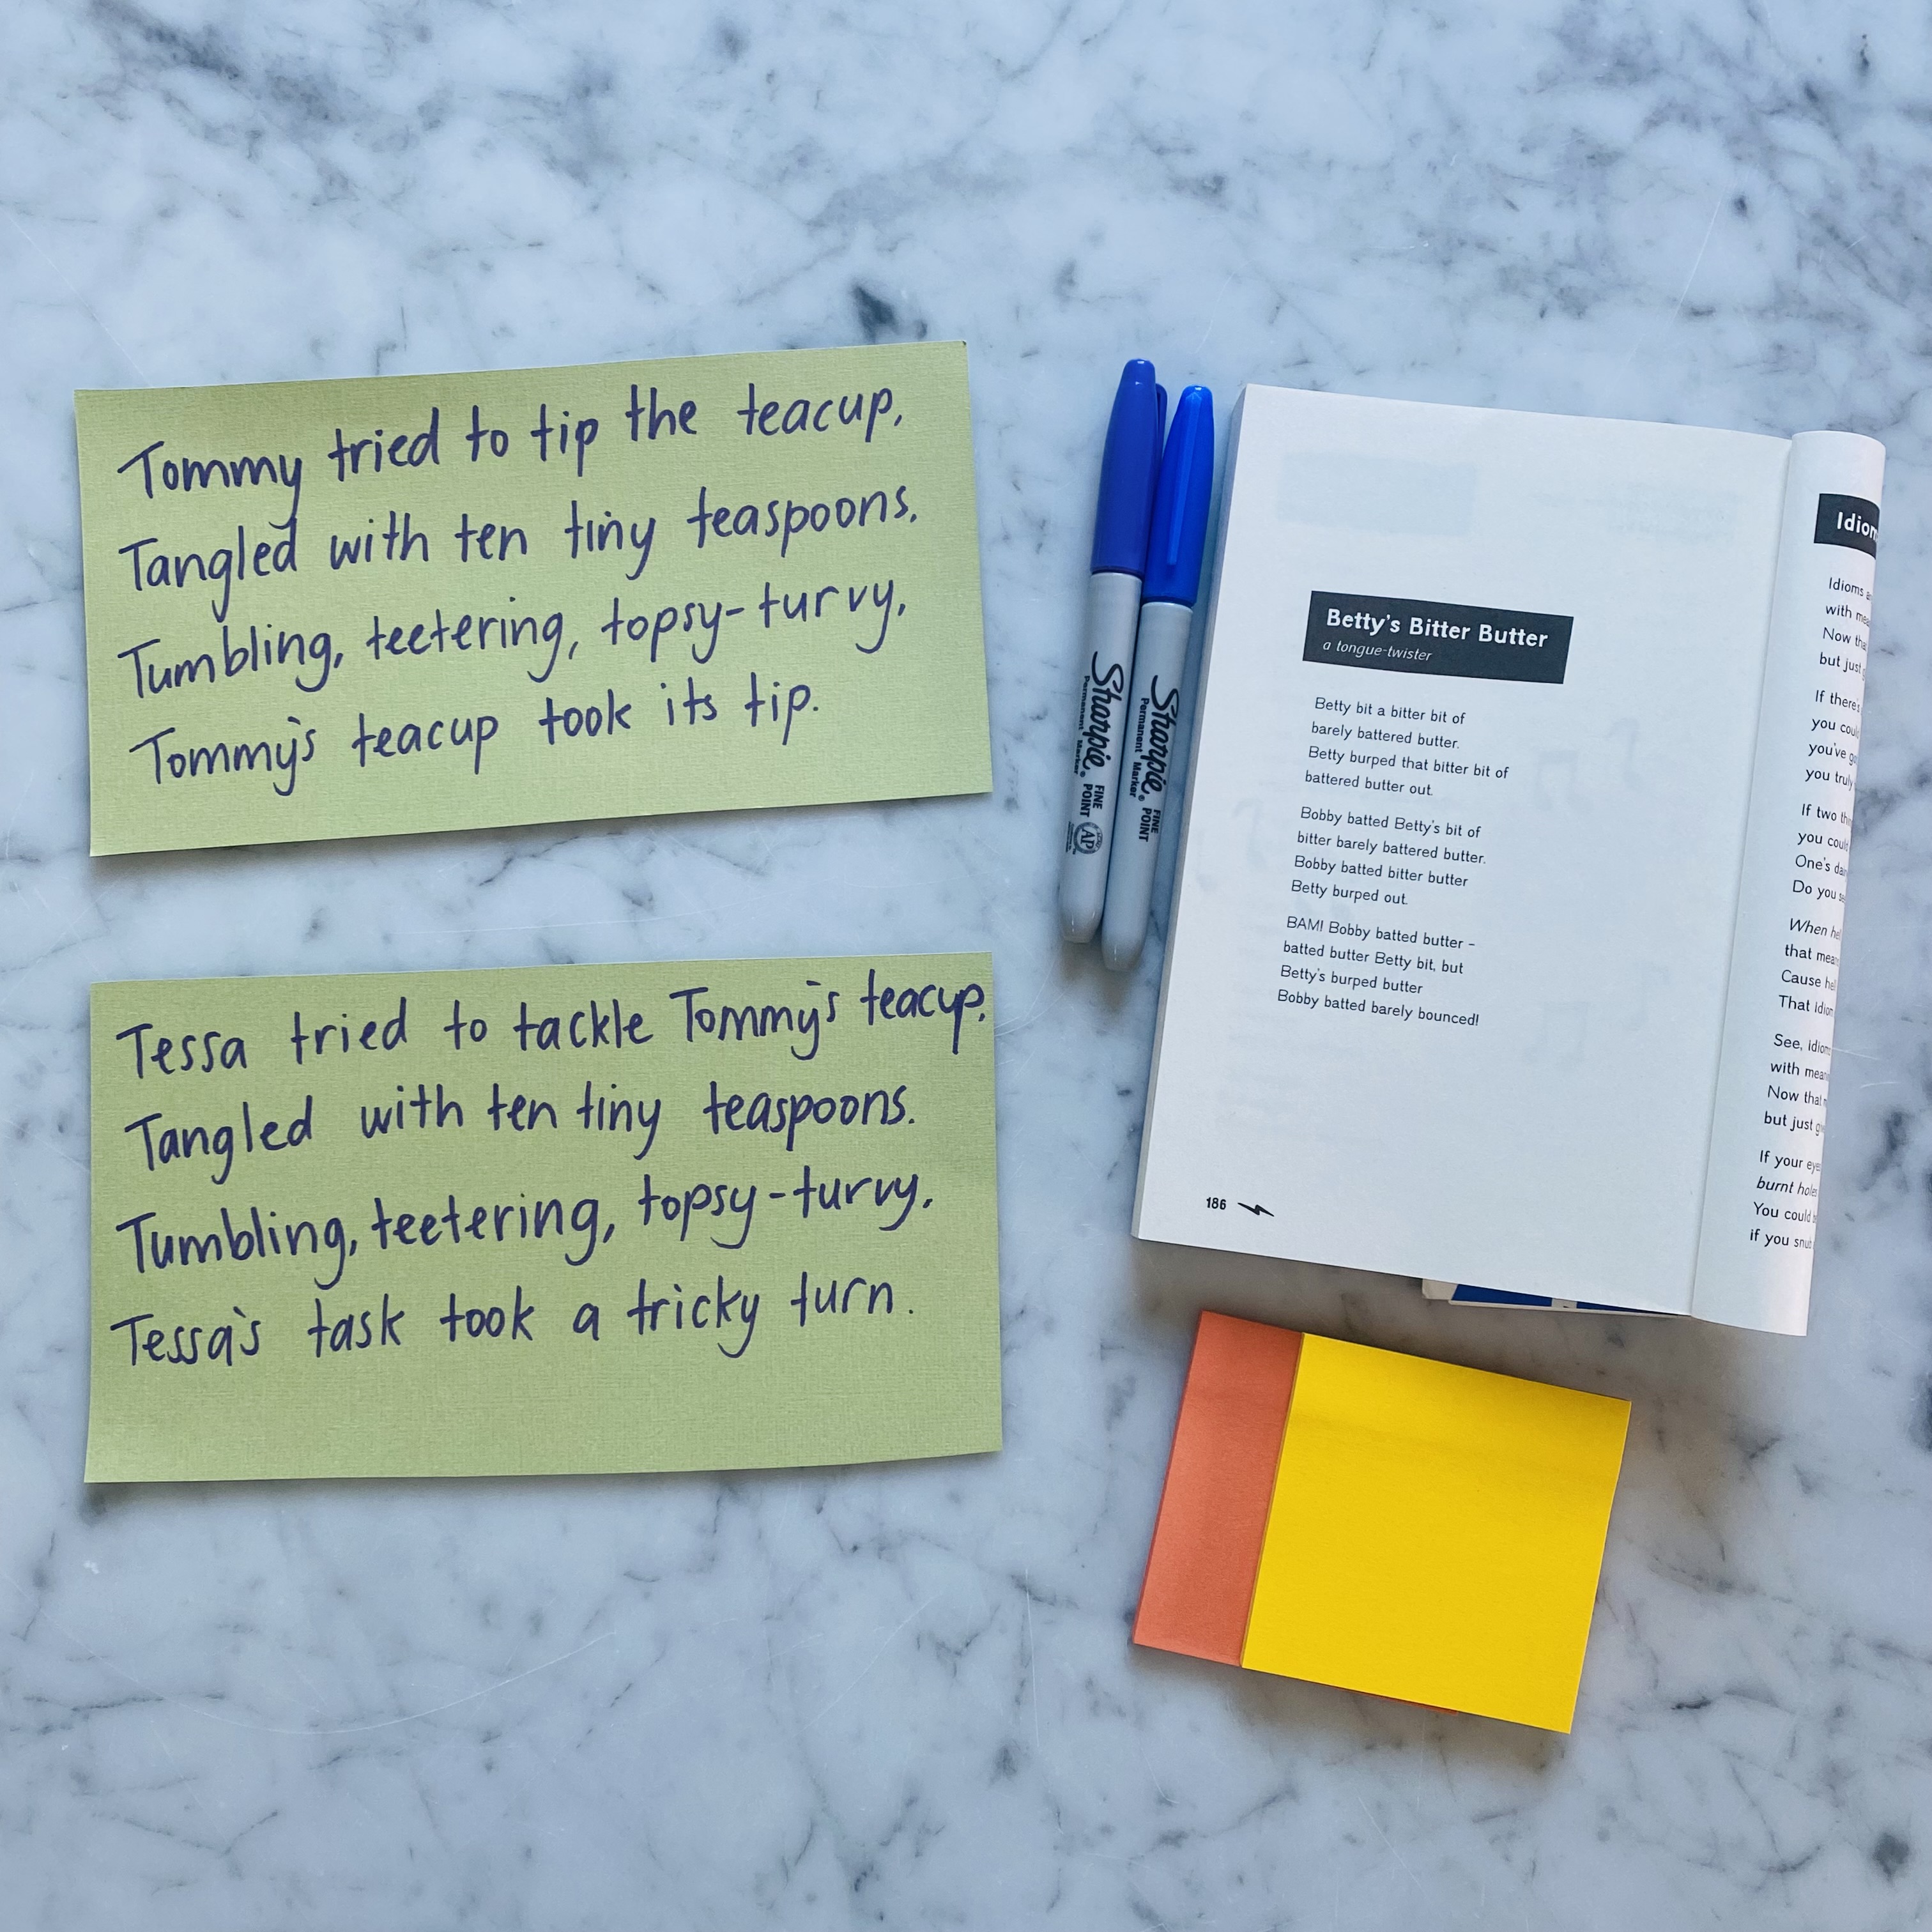 Tommy tried to tip the teacup,
Tangled with ten tiny teaspoons.
Tumbling, teetering, topsy-turvy,
Tommy's teacup took its tip.
Tessa tried to tackle Tommy's teacup,
Tangled with ten tiny teaspoons.
Tumbling, teetering, topsy-turvy,
Tessa's task took a tricky turn.
Sharpie
Permanent Marker
FINE
POINT
AP
Sharpie
Permanent Marker
FINE
POINT
Betty's Bitter Butter
a tongue-twister
Betty bit a bitter bit of
barely battered butter.
Betty burped that bitter bit of
battered butter out.
Bobby batted Betty's bit of
bitter barely battered butter.
Bobby batted bitter butter
Betty burped out.
BAM! Bobby batted butter –
batted butter Betty bit, but
Betty's burped butter
Bobby batted barely bounced!
186
Idioms
with
Now
but just
If there's
you
you've
you truly
If two
you
One's
Do you
When
that
Cause
That
See,
with
Now that
but just
If your
burnt
You could
if you